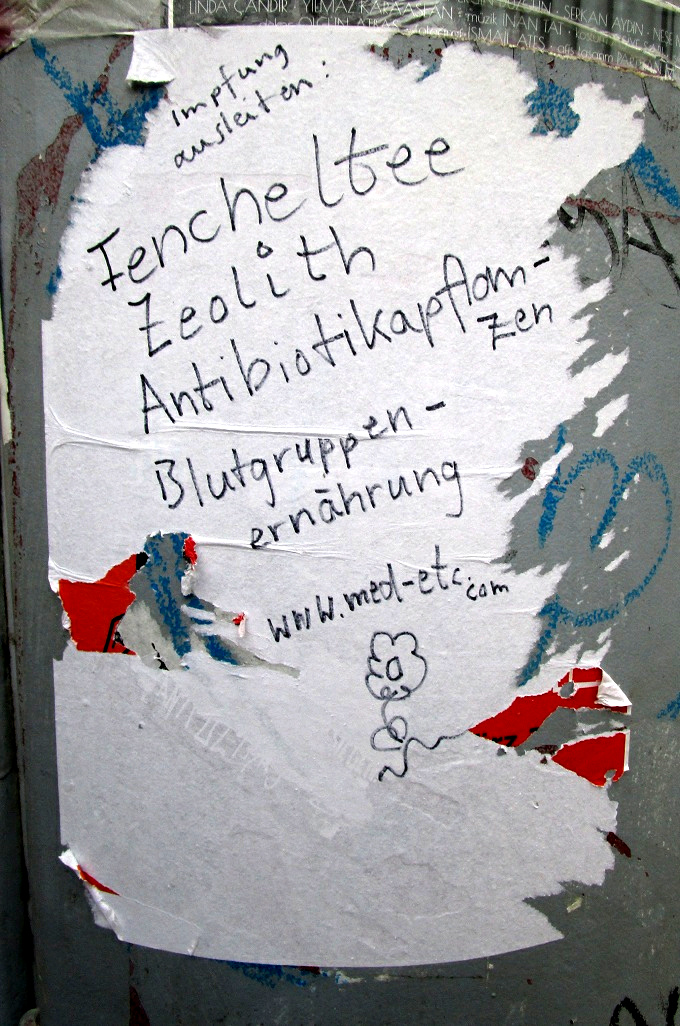 LINDA ÇANDIR · YILMAZ KARAASLAN · müzik INAN TAT
SERKAN AYDIN
ISMAIL ATES
Impfung
ausleiten:
Fencheltee
Zeolith
Antibiotikapflan-
zen
Blutgruppen-
ernährung
www.med-etc.com